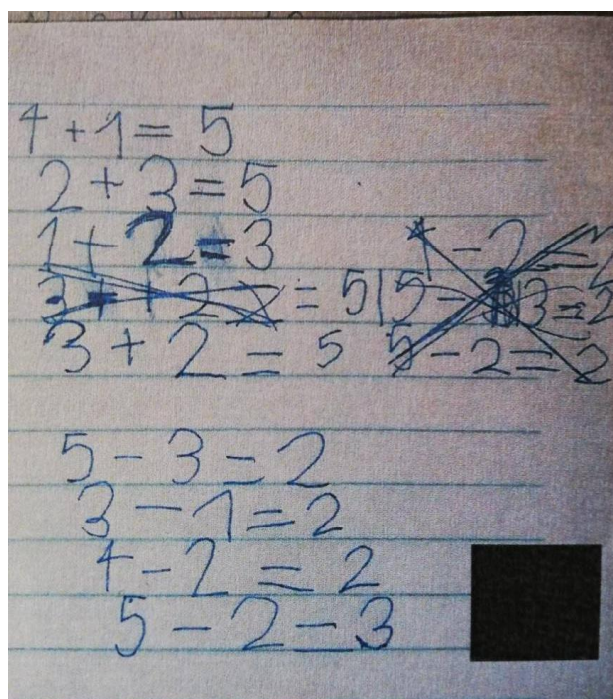 4+1=5
2+3=5
1+2=3
= 5
3+2=5
5-2=2
5-3=2
3-1=2
4-2=2
5-2=3